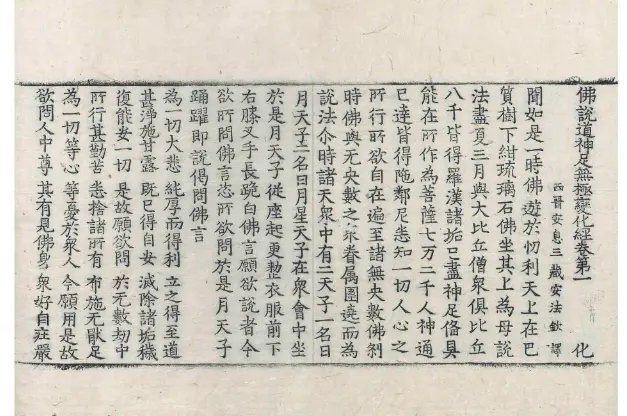 佛說道神足無極變化經卷第一 化
西晉安息三藏安法欽譯
聞如是一時佛遊於忉利天上在巴
質樹下紺琉璃石佛坐其上為母說
法盡夏三月與大比丘僧衆俱比丘
八千皆得羅漢諸垢已盡神足俻具
能在所作為菩薩七万二千人神通
已達皆得陁鄰尼悉知一切人心之
所行所欲自在遍至諸無央數佛剎
時佛與无央數之衆眷属圍遶而為
說法尒時諸天衆中有二天子一名日
月天子二名日月星天子在衆會中坐
於是月天子從座起更整衣服前下
右膝叉手長跪白佛言願欲說者今
欲所問佛言恣所欲問於是月天子
踊躍即說偈問佛言
為一切大悲 純厚而得利 立之得至道
甚淨施甘露 既已得自安 滅除諸垢穢
復能安一切 是故願欲問 於无數劫中
所行甚勤苦 悉捨諸所有 布施无猒足
為一切等心 等憂於衆人 今願用是故
欲問人中尊 其有見佛身 衆好自莊嚴